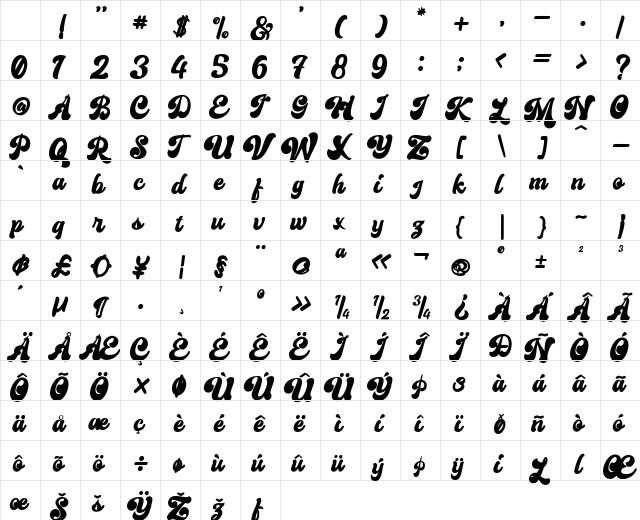 ! " # $ % & ' ( ) * + , – . /
0 1 2 3 4 5 6 7 8 9 : ; < = > ?
@ A B C D E F G H I J K L M N O
P Q R S T U V W X Y Z [ \ ] ^ _
` a b c d e f g h i j k l m n o
p q r s t u v w x y z { | } ~ ¡
¢ £ ¤ ¥ ¦ § ¨ © ª « ¬ ® ° ± ² ³
´ µ ¶ · ¸ ¹ º » ¼ ½ ¾ ¿ À Á Â Ã
Ä Å Æ Ç È É Ê Ë Ì Í Î Ï Ð Ñ Ò Ó
Ô Õ Ö × Ø Ù Ú Û Ü Ý þ ß à á â ã
ä å æ ç è é ê ë ì í î ï ð ñ ò ó
ô õ ö ÷ ø ù ú û ü ý þ ÿ í Ł ł Œ
œ Š š Ÿ Ž ž ƒ